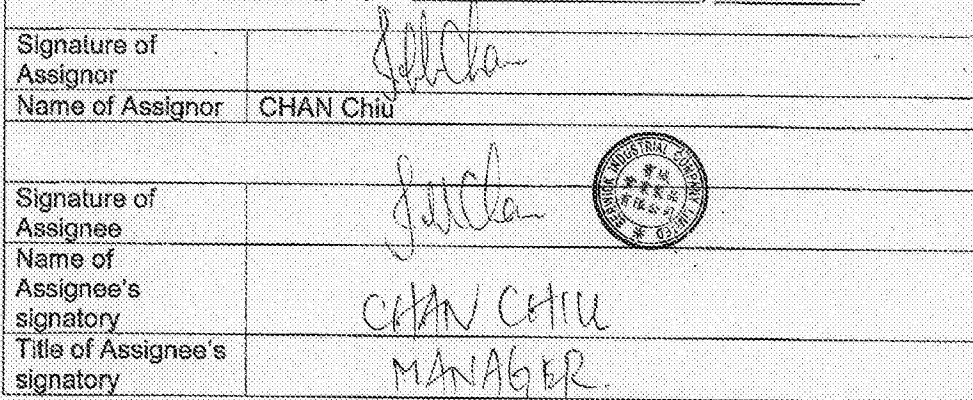 Signature of
Assignor
Name of Assignor CHAN Chiu
Signature of
Assignee
INDUSTRIAL COMPANY LIMITED
有限公司
Name of
Assignee's
signatory
CHAN CHIU
Title of Assignee's
signatory
MANAGER.